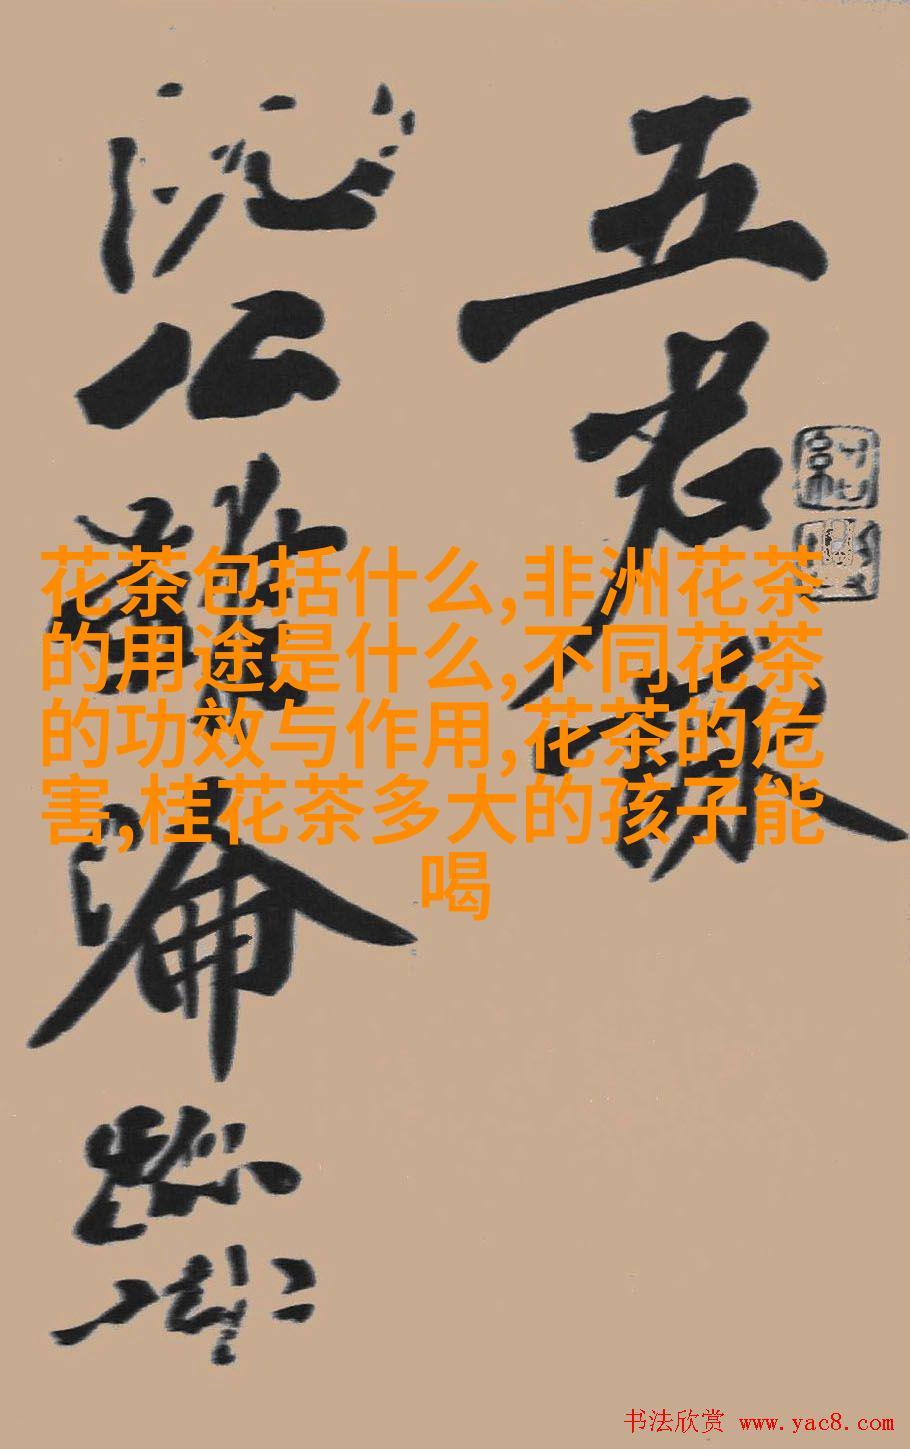 五君咏
阮公虽沦迹
花茶包括什么,非洲花茶
的用途是什么,不同花茶
的功效与作用,花茶的危
害,桂花茶多大的孩子能
喝
书法欣赏 www.yac8.com